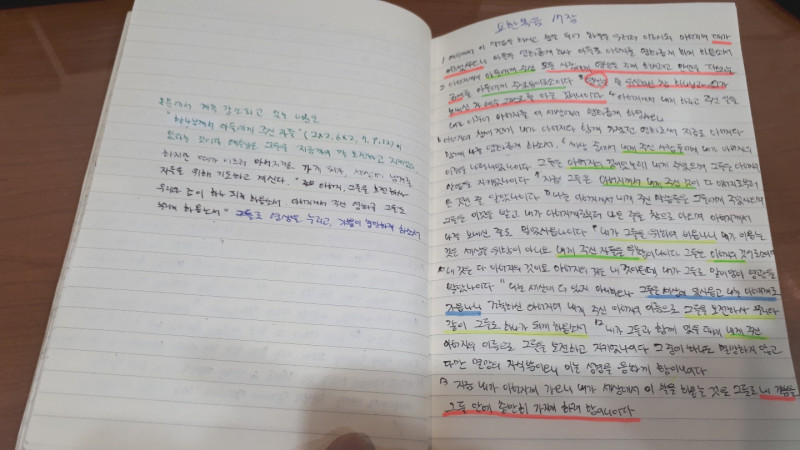 본문에서 계속 강조하고 있는 내용은
"하나님께서 아들에게 주신 자들" (2×2, 6×2, 9, 12)이
하지만 때가 이르러 아버지께로 가기 직전, 세상에 남겨질
자들을 위해 기도하고 계신다. 아버지, 그들을 보전하사
우리와 같이 하나 되게 하옵소서
그들로 영생을 누리고, 기쁨이 충만하게 하소서
요한복음 17장
1 예수께서 이 말씀을 하시고 눈을 들어 하늘을 우러러 이르시되 아버지여 때가
이르렀사오니 아들을 영화롭게 하사 아들로 아버지를 영화롭게 하게 하옵소서
2 아버지께서 아들에게 주신 모든 사람에게 영생을 주게 하시려고 만민을 다스리는
권세를 아들에게 주셨음이로소이다 3 영생은 곧 유일하신 참 하나님과
보내신 자 예수 그리스도를 아는 것이니이다 4 아버지께서 내게 하라고 주신 일을
내가 이루어 아버지를 이 세상에서 영화롭게 하였사오니
함께 나를 영화롭게 하옵소서 6 세상 중에서 내게 주신 사람들에게 내가 아버지의
이름을 나타내었나이다 그들은 아버지의 것이었는데 내게 주셨으며 그들은 아버지의
말씀을 지키었나이다 7 지금 그들은 아버지께서 내게 주신 것이 다 아버지로부터
온 것인 줄 알았나이다 8 나는 아버지께서 내게 주신 말씀들을 그들에게 주었사오며
그들은 이것을 받고 내가 아버지께로부터 나온 줄을 참으로 아오며 아버지께서
나를 보내신 줄도 믿었사옵나이다 9 내가 그들을 위하여 비옵나니 내가 비옵는
것은 세상을 위함이 아니요 내게 주신 자들을 위함이니이다 그들은 아버지의 것이로소이다
10 내 것은 다 아버지의 것이요 아버지의 것은 내 것이온데 내가 그들로 말미암아 영광을
받았나이다 11 나는 세상에 더 있지 아니하오나 그들은 세상에 있사옵고 나는 아버지께로
가옵나니 거룩하신 아버지여 내게 주신 아버지의 이름으로 그들을 보전하사 우리와
같이 그들도 하나가 되게 하옵소서 12 내가 그들과 함께 있을 때에 내게 주신
아버지의 이름으로 그들을 보전하고 지키었나이다 그 중의 하나도 멸망하지 않고
다만 멸망의 자식뿐이오니 이는 성경을 응하게 함이니이다
13 지금 내가 아버지께로 가오니 내가 세상에서 이 말을 하옵는 것은 그들로 내 기쁨을
그들 안에 충만히 가지게 하려 함이니이다